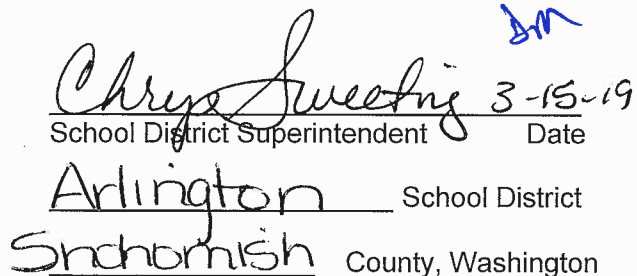 DM
Chrys Sweeting 3-15-19
School District Superintendent Date
Arlington School District
Snohomish County, Washington